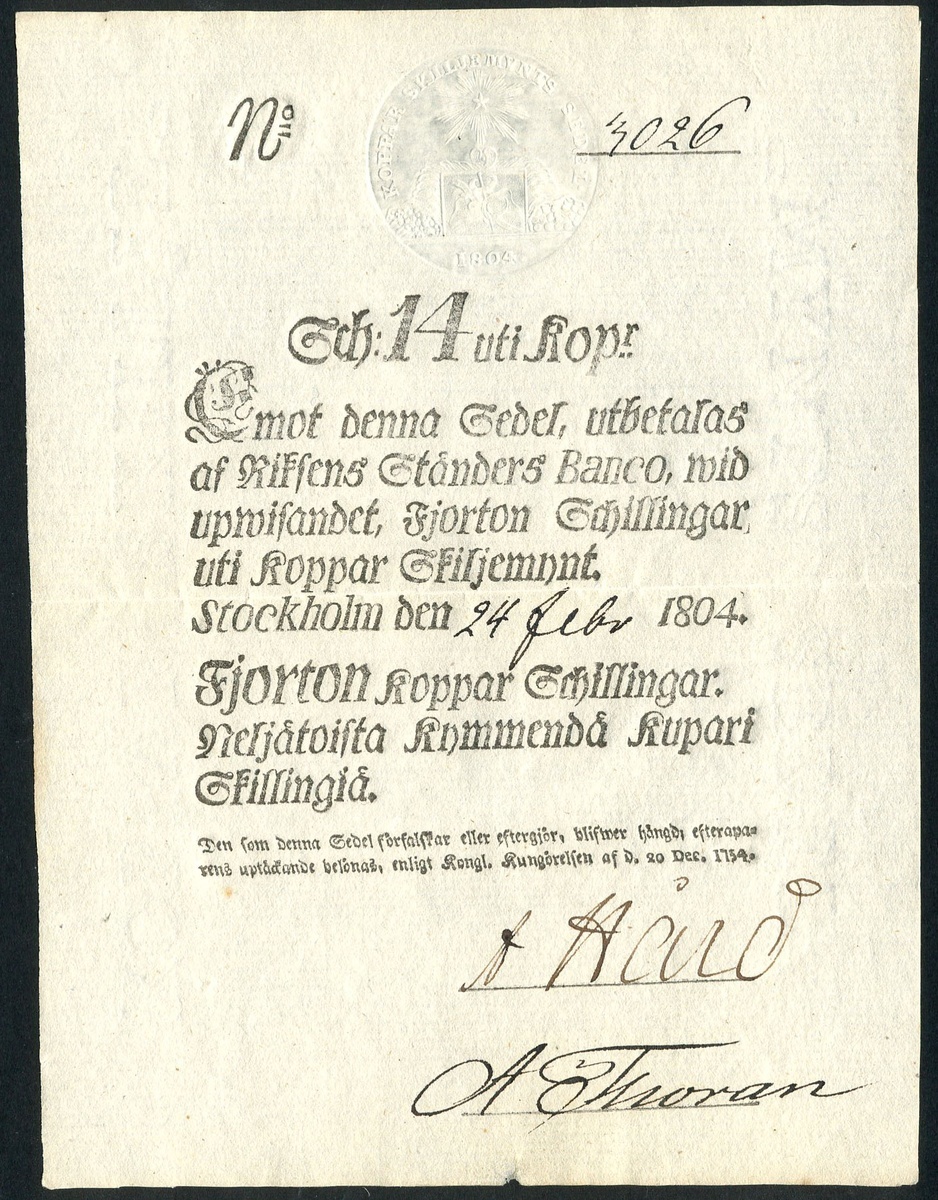 KOPPAR SKILLJEMYNTS
1804
N:o 3026
Sch: 14 uti Kop:r
Emot denna Sedel, utbetalas
af Riksens Ständers Banco, wid
upwisandet, Fjorton Schillingar
uti Koppar Skiljemynt.
Stockholm den 24 febr 1804.
Fjorton Koppar Schillingar.
Neljätoista Kymmendä Kupari
Skillingiä.
Den som denna Sedel förfalskar eller eftergjör, blifwer hängd; efterapa=
rens uptäckande belönas, enligt Kongl. Kungörelsen af d. 20 Dec. 1754.
A Hård
A